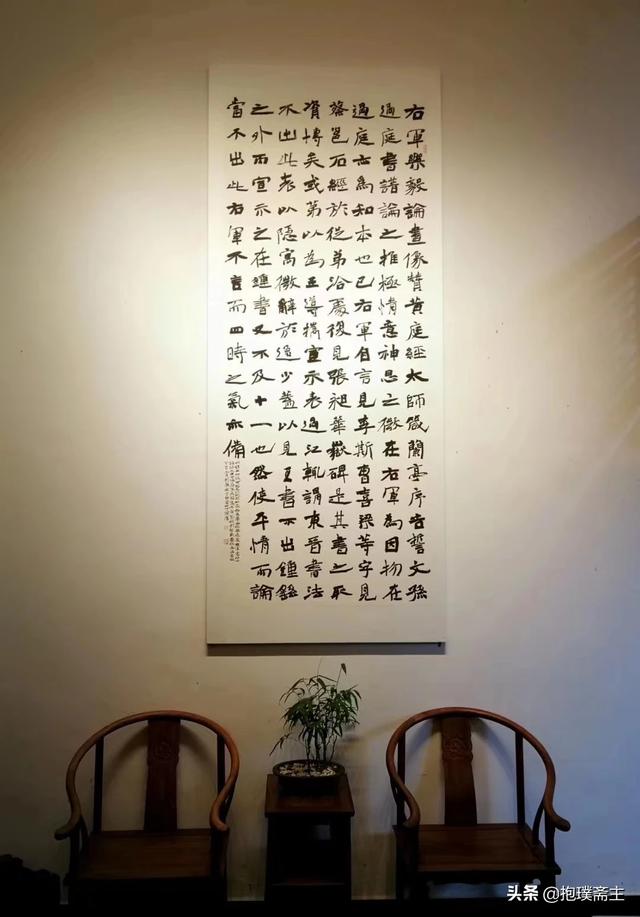 右軍樂毅論畫像贊黃庭經太師箴蘭亭序告誓文孫
過庭書譜論之推極情意神思之微在右軍為因物在
過庭亦為知本也已右軍自言見李斯曹喜梁等字見
蔡邕石經於從弟洽處復見張昶華嶽碑是其書之取
資博矣或第以為王導攜宣示表過江輒謂東晉書法
不出此表以隱寓微辭於逸少蓋以見王書不出鍾繇
之外而宣示之在鍾書又不及十一也然使平情而論
當不出此右軍不言而四時之氣亦備
头条 @抱璞斋主